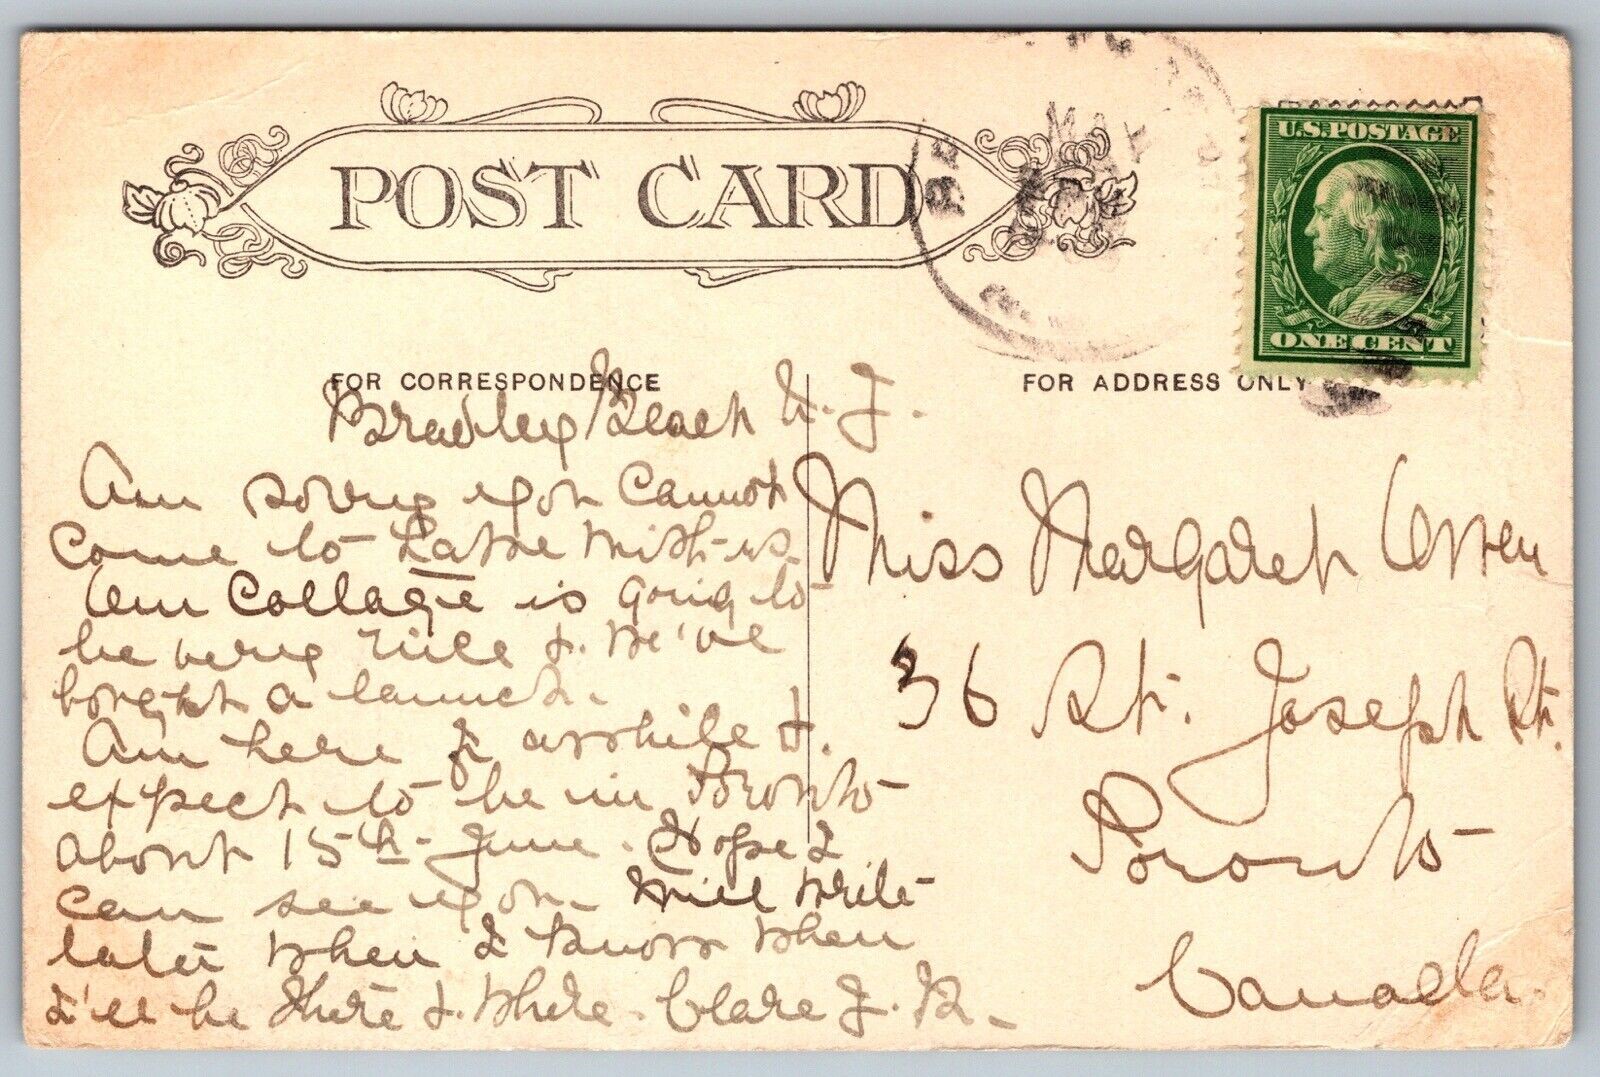 POST CARD
U.S. POSTAGE
ONE CENT
FOR CORRESPONDENCE
FOR ADDRESS ONLY
Bradley Beach N. J.
Am sorry you cannot
come to Lake with us.
Our Cottage is going to
be very nice & we've
bought a launch.
Am here for awhile &
expect to be in Toronto
about 15th June. Hope I
can see you. Will write
later when I know when
I'll be there & where. Clare J. B.
Miss Margaret
36 St. Joseph St.
Toronto
Canada.